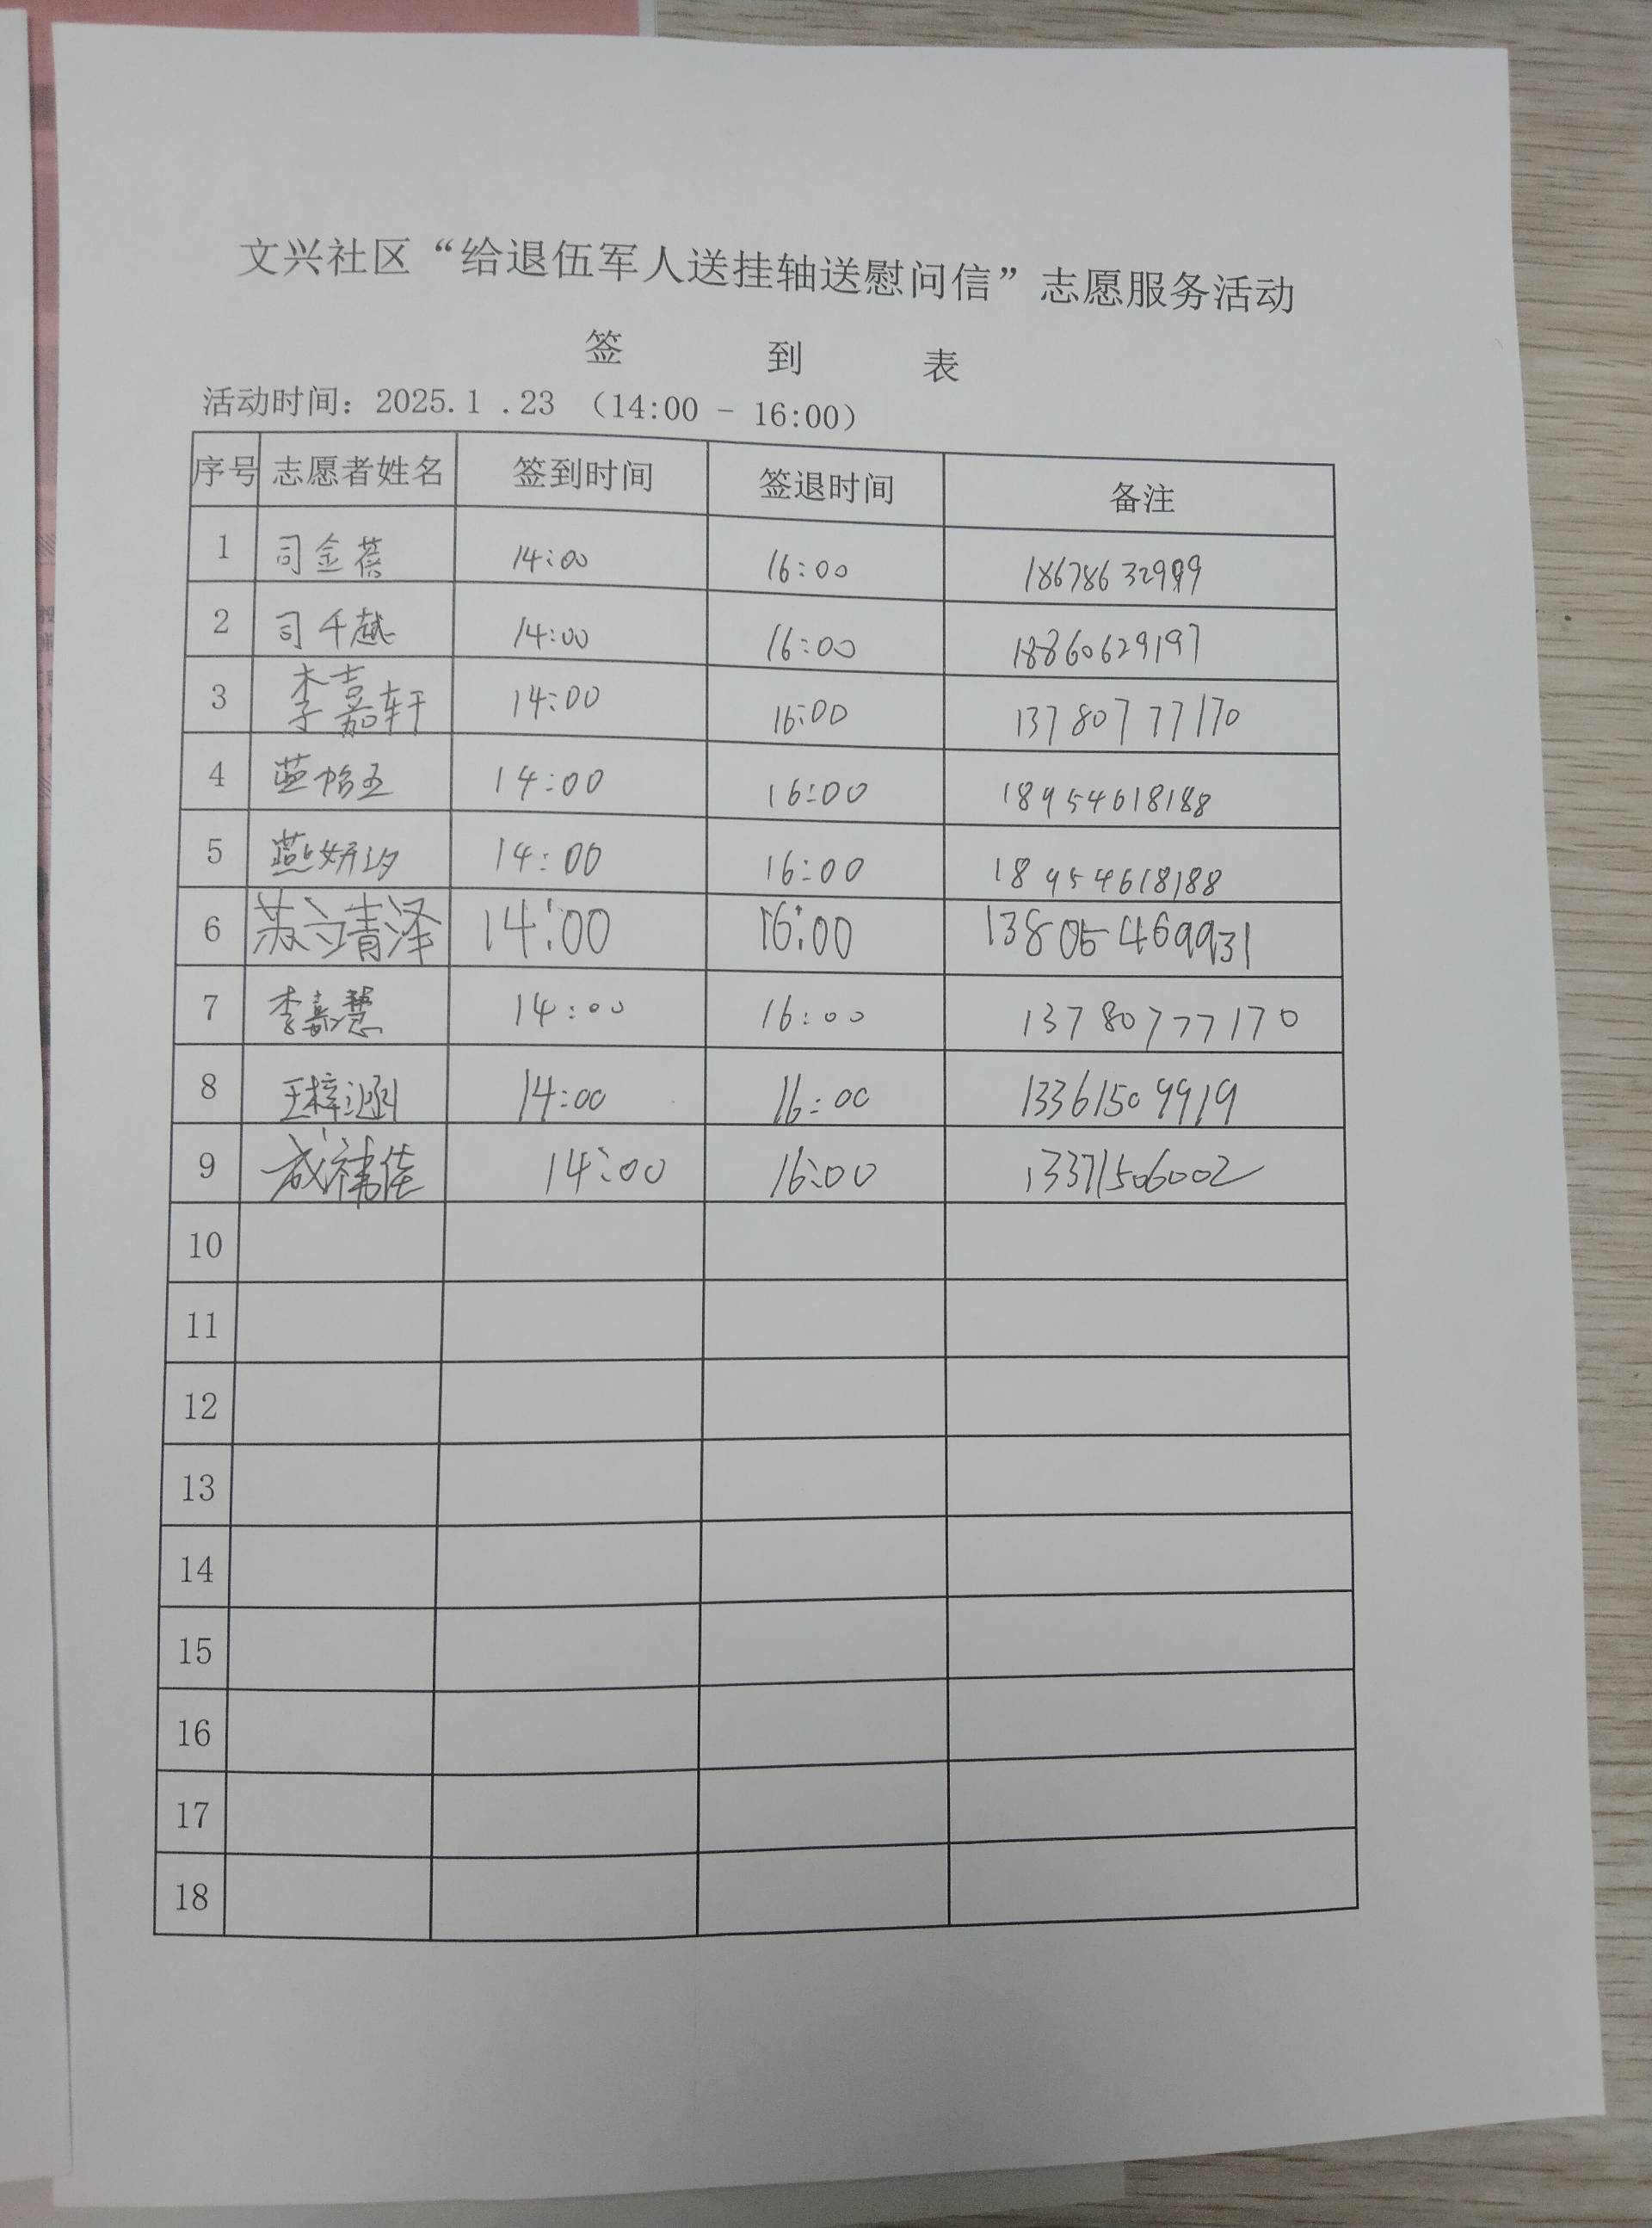 文兴社区“给退伍军人送挂轴送慰问信”志愿服务活动
签 到 表
活动时间：2025.1 .23 （14:00 - 16:00）
序号 志愿者姓名 签到时间 签退时间 备注
1 司金蓓 14:00 16:00 18678632999
2 司千越 14:00 16:00 18860629197
3 李嘉轩 14:00 16:00 13780777170
4 14:00 16:00 18954618188
5 燕妍汐 14:00 16:00 18954618188
6 苏立靖泽 14:00 16:00 13805469931
7 李嘉慧 14:00 16:00 13780777170
8 王梓涵 14:00 16:00 13361509919
9 成祎佳 14:00 16:00 13371506002
10
11
12
13
14
15
16
17
18